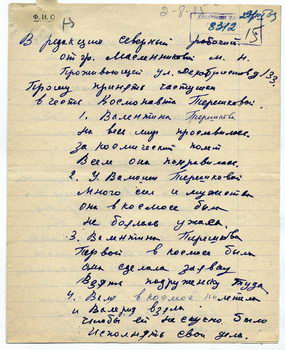 Ф.И.О
2-8-15
8312
15
В редакцию северный рабочий
от гр. Масленниковой М. Н.
Проживающей ул. Декабристов д 133.
Прошу принять частушки
в честь Космонавта Терешковой
1. Валентина Терешкова
На весь мир прославилась
За космический полёт
Всем она понравилась.
2. У Валюши Терешковой
Много сил и мужества
Она в космосе была
Не боялась ужаса.
3. Валентина Терешкова
Первой в космосе была
Она сделала
подруженьку туда
4. Валя в космос полетела
и Валерия взяла
Чтобы ей не скучно было
Исполнять свои дела.